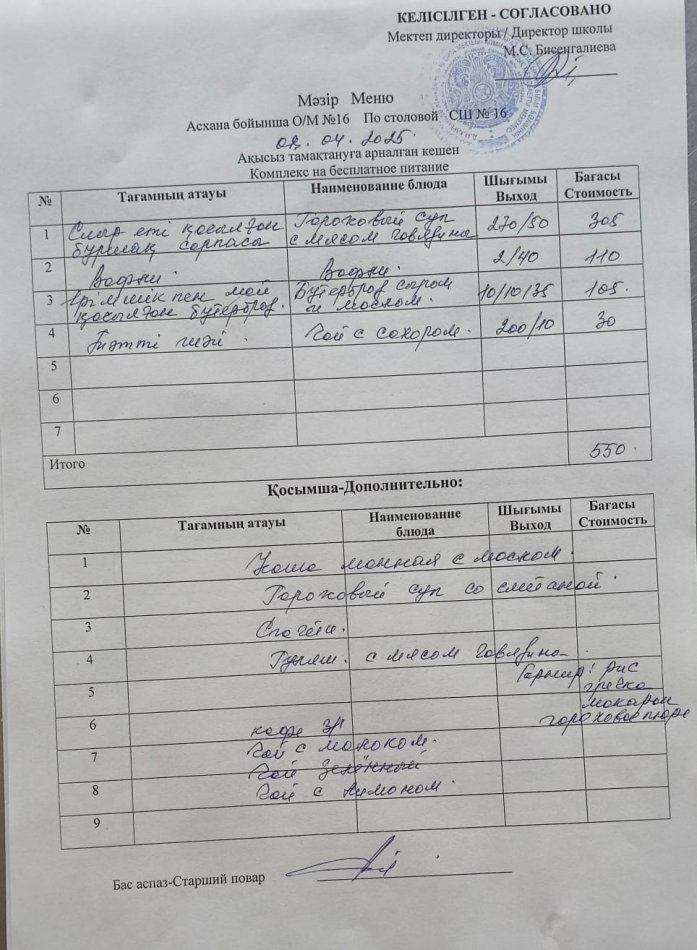 КЕЛІСІЛГЕН - СОГЛАСОВАНО
Мектеп директоры / Директор школы
М.С. Бисенгалиева
Мәзір Меню
Асхана бойынша О/М №16 По столовой СШ № 16
04. 2025.
Ақысыз тамақтануға арналған кешен
Комплекс на бесплатное питание
№ Тағамның атауы Наименование блюда Шығымы Выход Бағасы Стоимость
1 Сиыр еті қосылған бұршақ сорпасы Гороховый суп с мясом говядина 270/50 305
2 Вафли. Вафли. 2/40 110
3 Ірімшик пен май қосылған бутерброд. Бутерброд сыром и маслом. 10/10/35 105.
4 Тәтті шәй. Чай с сахором. 200/10 30
5
6
7
Итого 550.
Қосымша-Дополнительно:
№ Тағамның атауы Наименование блюда Шығымы Выход Бағасы Стоимость
1 Каша манная с маслом.
2 Гороховый суп со сметаной.
3 Спагети.
4 Гуляш. с мясом говядина.
Гарнир: рис
5 гречка
макарон
6 гороховое пюре
кофе 3в1
7 Чай с молоком.
Чай Зелённый
8 Чай с лимоном.
9
Бас аспаз-Старший повар